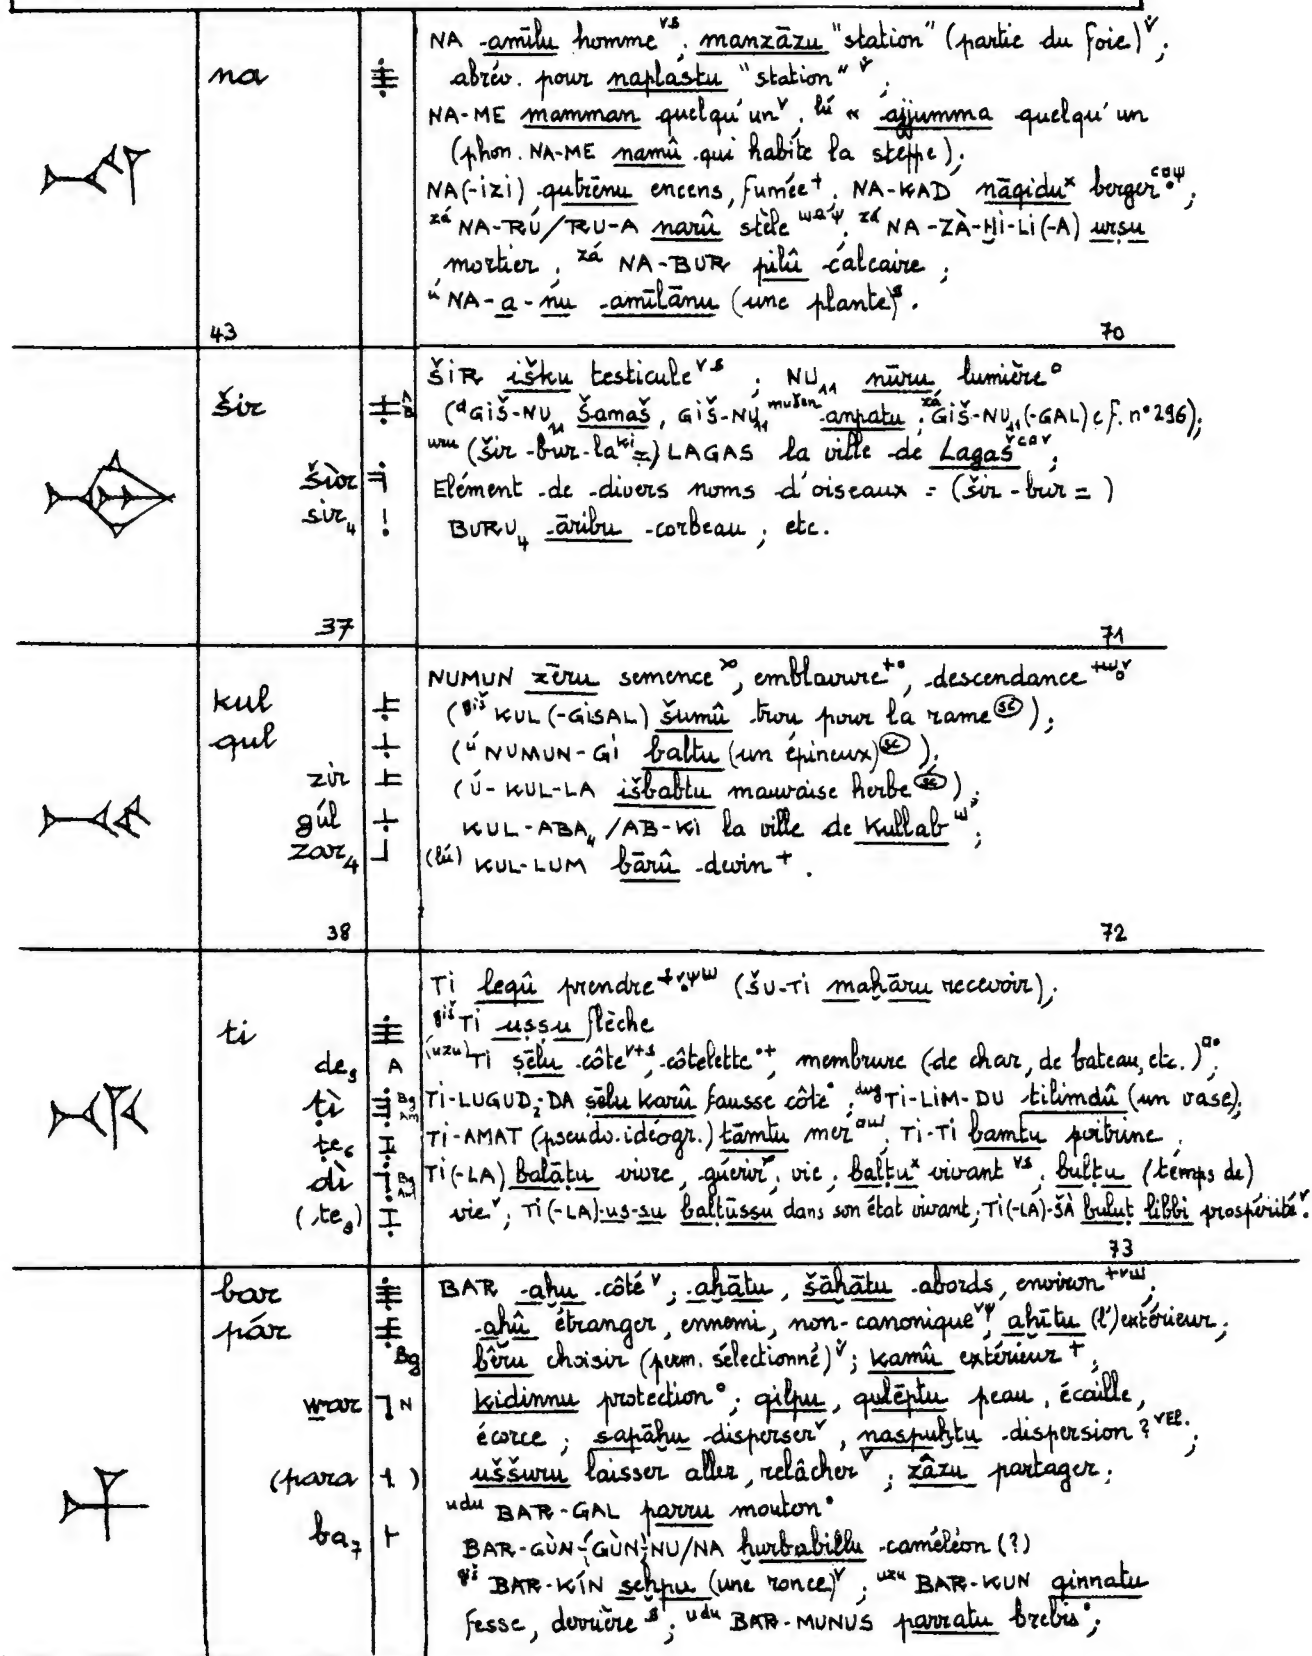 na
NA amīlu homme vs, manzāzu "station" (partie du foie) v;
abrév. pour naplastu "station" v;
NA-ME mamman quelqu'un v, lú " ajjumma quelqu'un
(phon. NA-ME namû qui habite la steppe);
NA(-izi) qutrēnu encens, fumée +, NA-KAD nāqidu x berger;
zá NA-RÚ/RU-A narû stèle, zá NA-ZÀ-ḪI-LI(-A) urṣu
mortier, zá NA-BUR pilû calcaire;
ú NA-a-nu amīlānu (une plante) s.
43 70
šir
ŠIR išku testicule vs; NU₁₁ nūru lumière °
(d GIŠ-NU₁₁ Šamaš, GIŠ-NU₁₁ mušen anpatu; zá GIŠ-NU₁₁(-GAL) cf. n° 296);
uru (šir-bur-la ki =) LAGAS la ville de Lagaš;
šìr
sir₄
Elément de divers noms d'oiseaux = (šir-bur = )
BURU₄ āribu corbeau; etc.
37 71
kul
qul
zir
gúl
zar₄
NUMUN zēru semence, emblavure +°, descendance
(giš KUL(-GISAL) šumû trou pour la rame (sc) );
(ú NUMUN-GI baltu (un épineux) (sc) );
(Ú-KUL-LA išbabtu mauvaise herbe (sc) );
KUL-ABA₄/AB-KI la ville de Kullab ш;
(lú) KUL-LUM bārû devin +.
38 72
ti
de₉ A
ṭì
ṭe₆
dì
(te₉)
TI leqû prendre (ŠU-TI maḫāru recevoir);
giš TI uṣṣu flèche
(uzu) TI ṣēlu côte v+s, côtelette °+, membrure (de char, de bateau, etc.);
TI-LUGUD₂-DA ṣēlu karû fausse côte °; dug TI-LIM-DU tilimdû (un vase);
TI-AMAT (pseudo. idéogr.) tāmtu mer, TI-TI bamtu poitrine,
TI(-LA) balāṭu vivre, guérir, vie; balṭu x vivant vs, bulṭu (temps de)
vie v; TI(-LA)-us-su balṭūssu dans son état vivant; TI(-LA)-ŠÀ buluṭ libbi prospérité v.
73
bar
pár
Bg
war N
(para )
ba₇
BAR aḫu côté v; aḫātu, šāḫātu abords, environ;
aḫû étranger, ennemi, non-canonique, aḫītu (l')extérieur;
bêru choisir (perm. sélectionné) v; kamû extérieur +,
kidinnu protection °; qilpu, qulēptu peau, écaille,
écorce; sapāḫu disperser v, naspuḫtu dispersion ? vEl.;
uššuru laisser aller, relâcher v; zâzu partager;
udu BAR-GAL parru mouton °
BAR-GÙN-(GÙN)-NU/NA ḫurbabillu caméléon (?)
giš BAR-KÍN seḫpu (une ronce) v; uzu BAR-KUN qinnatu
fesse, derrière s; udu BAR-MUNUS parratu brebis °;